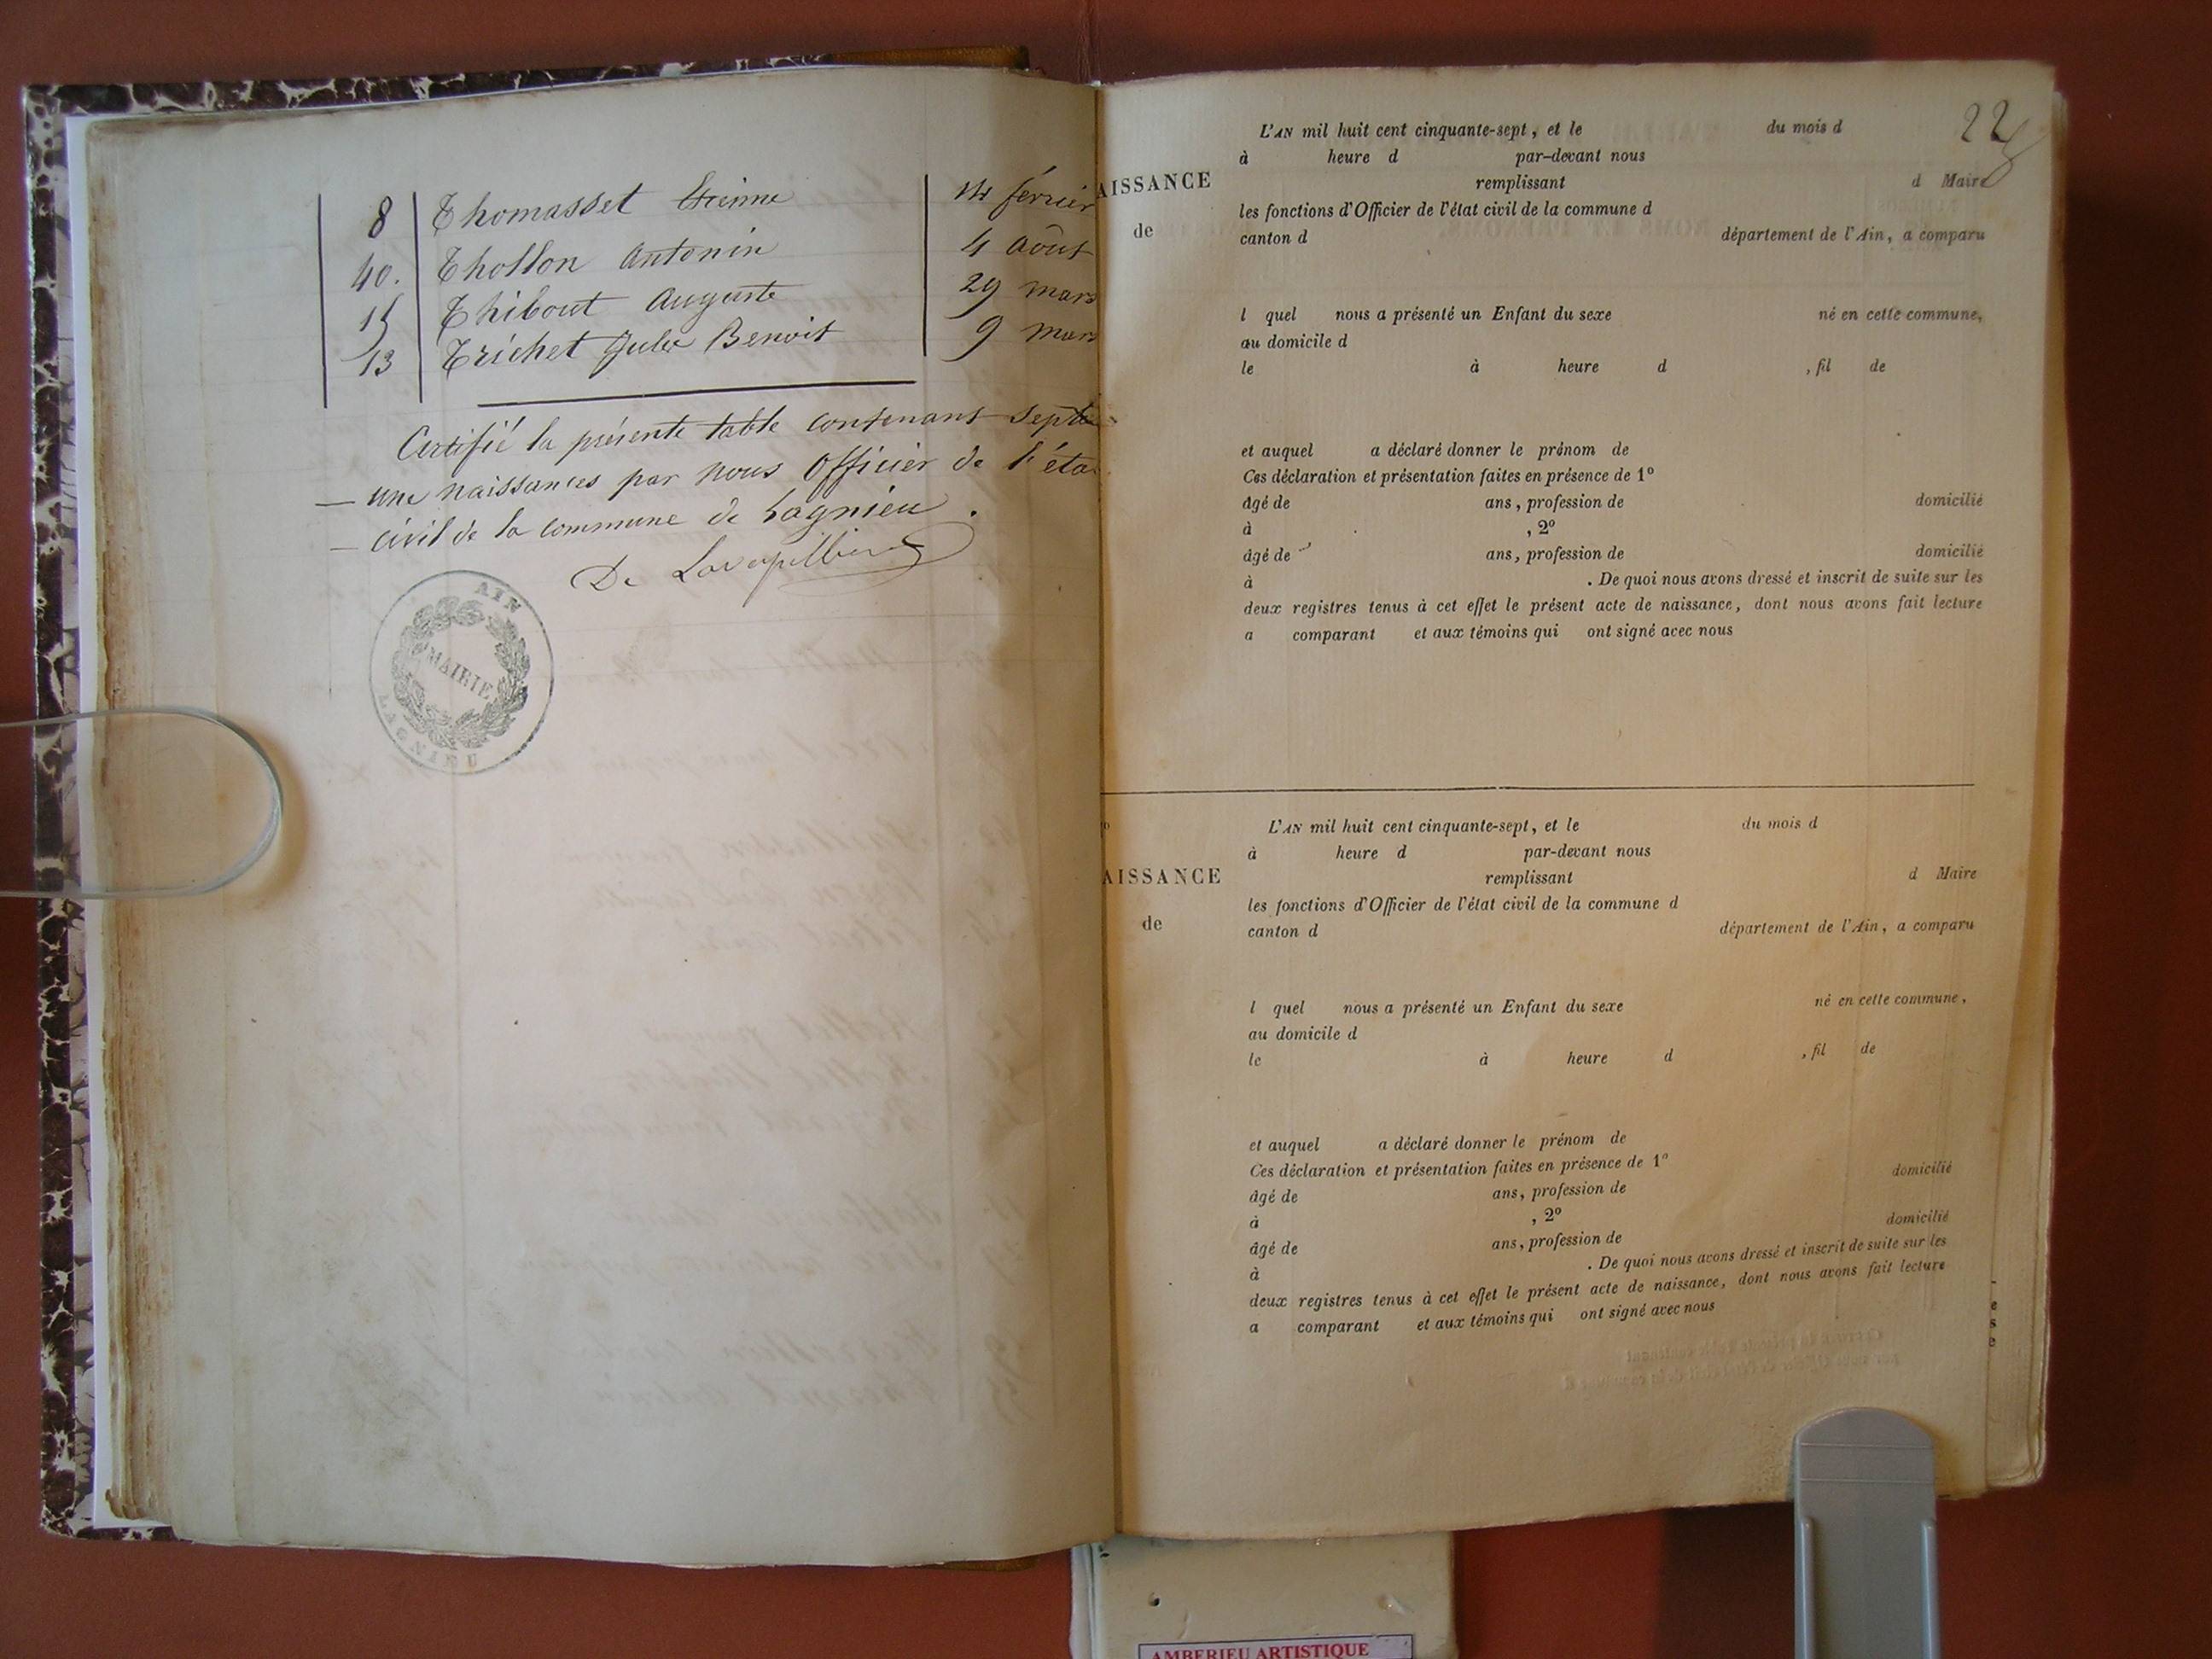 8 Thomasset Etienne 14 février
40. Thollon Antonin 4 août
15 Thibout Auguste 29 mars
13 Trichet Jules Benoit 9 mars
Certifié la présente table contenant septe
— une naissances par nous Officier de l'éta
— civil de la commune de Lagnieu.
AIN
MAIRIE
LAGNIEU
22
L'AN mil huit cent cinquante-sept, et le du mois d
à heure d par-devant nous
AISSANCE remplissant d Maire
les fonctions d'Officier de l'état civil de la commune d
de canton d département de l'Ain, a comparu
l quel nous a présenté un Enfant du sexe né en cette commune,
au domicile d
le à heure d , fil de
et auquel a déclaré donner le prénom de
Ces déclaration et présentation faites en présence de 1º
âgé de ans, profession de domicilié
à , 2º
âgé de ans, profession de domicilié
à . De quoi nous avons dressé et inscrit de suite sur les
deux registres tenus à cet effet le présent acte de naissance, dont nous avons fait lecture
a comparant et aux témoins qui ont signé avec nous
L'AN mil huit cent cinquante-sept, et le du mois d
à heure d par-devant nous
AISSANCE remplissant d Maire
les fonctions d'Officier de l'état civil de la commune d
de canton d département de l'Ain, a comparu
l quel nous a présenté un Enfant du sexe né en cette commune,
au domicile d
le à heure d , fil de
et auquel a déclaré donner le prénom de
Ces déclaration et présentation faites en présence de 1º
âgé de ans, profession de domicilié
à , 2º
âgé de ans, profession de domicilié
à . De quoi nous avons dressé et inscrit de suite sur les
deux registres tenus à cet effet le présent acte de naissance, dont nous avons fait lecture
a comparant et aux témoins qui ont signé avec nous
AMBERIEU ARTISTIQUE